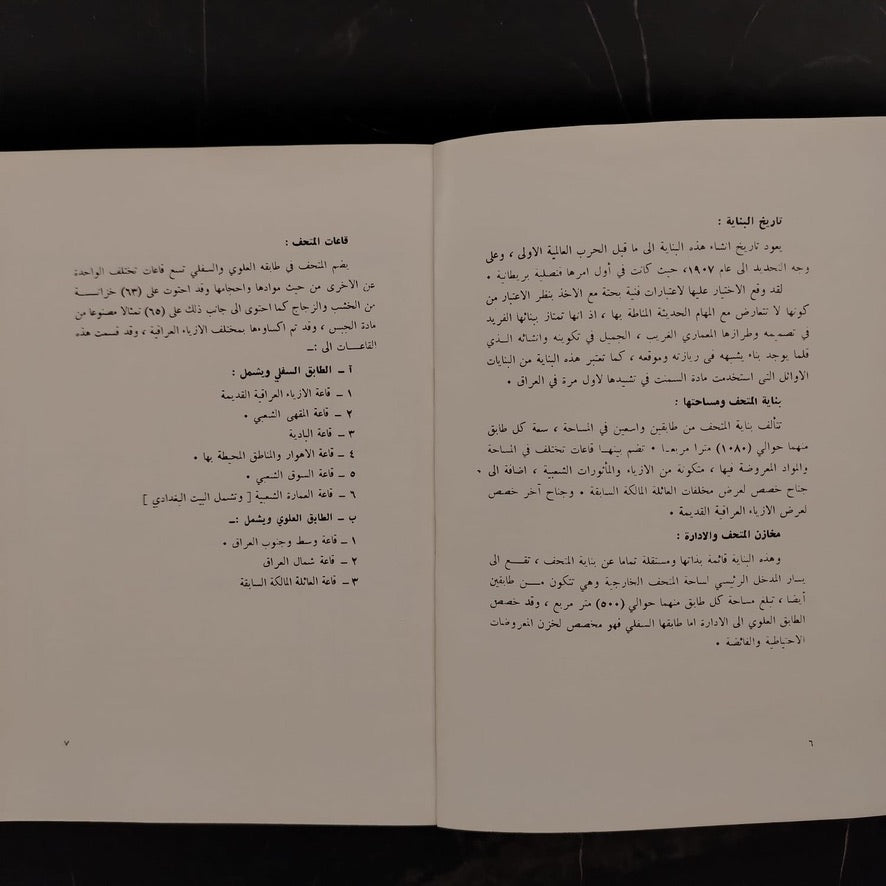 تاريخ البناية :
يعود تاريخ انشاء هذه البناية الى ما قبل الحرب العالمية الاولى ، وعلى
وجه التحديد الى عام ١٩٠٧، حيث كانت في أول امرها قنصلية بريطانية •
لقد وقع الاختيار عليها لاعتبارات فنية بحتة مع الاخذ بنظر الاعتبار من
كونها لا تتعارض مع المهام الحديثة المناطة بها ، اذ انها تمتاز ببنائها الفريد
في تصميمه وطرازها المعماري الغريب ، الجميل في تكوينه وانشائه الـذي
قلما يوجد بناء يشبهه في ريازته وموقعه ، كما تعتبر هذه البناية من البنايات
الاوائل التى استخدمت مادة السمنت في تشيدها لاول مرة في العراق •
بناية المتحف ومساحتها :
تتألف بناية المتحف من طابقين واسعين في المساحة ، سعة كل طابق
منهما حوالي (١٠٨٠) مترا مربعـا • تضم بينهـا قاعات تختلف في المساحة
والمواد المعروضة فيها ، متكونة من الازياء والمأثورات الشعبية ، اضافة الى
جناح خصص لعرض مخلفات العائلة المالكة السابقة • وجناح آخر خصص
لعرض الازياء العراقية القديمة •
مخازن المتحف والادارة :
وهذه البناية قائمة بذاتها ومستقلة تماما عن بناية المتحف ، تقـع الى
يسار المدخل الرئيسي لساحة المتحف الخارجية وهي تتكون مـن طابقين
أيضا ، تبلغ مساحة كل طابق منهما حوالي (٥٠٠) متر مربع ، وقد خصص
الطابق العلوي الى الادارة اما طابقها السفلي فهو مخصص لخزن المعروضات
الاحتياطية والفائضة •
٦
قاعات المتحف :
يضم المتحف في طابقه العلوي والسفلي تسع قاعات تختلف الواحدة
عن الاخرى من حيث موادها واحجامها وقد احتوت على (٦٣) خزانـة
من الخشب والزجاج كما احتوى الى جانب ذلك على (٦٥) تمثالا مصنوعا من
مادة الجبس ، وقد تم اكساوءها بمختلف الازياء العراقية ، وقد قسمت هذه
القاعـات الى :ـ
آ ـ الطابق السفلي ويشمل :
١ ـ قاعة الازياء العراقية القديمة
٢ ـ قاعة المقهى الشعبي •
٣ ـ قاعة البادية
٤ ـ قاعة الاهوار والمناطق المحيطة بها •
٥ ـ قاعة السوق الشعبي •
٦ ـ قاعة العمارة الشعبية [ وتشمل البيت البغدادي ]
ب ـ الطابق العلوي ويشمل :ـ
١ ـ قاعة وسط وجنوب العراق •
٢ ـ قاعة شمال العراق
٣ ـ قاعة العائلة المالكة السابقة
٧